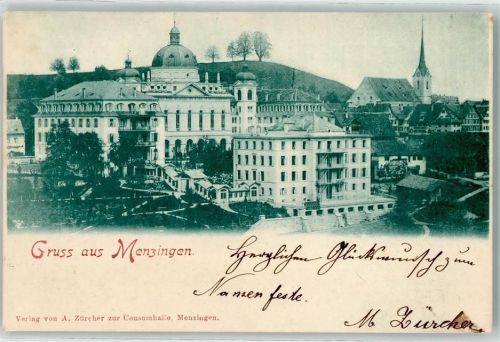 Gruss aus Menzingen.
Herzlichen Glückwunsch zum
Namensfeste.
Verlag von A. Zürcher zur Consumhalle, Menzingen.
M Zürcher